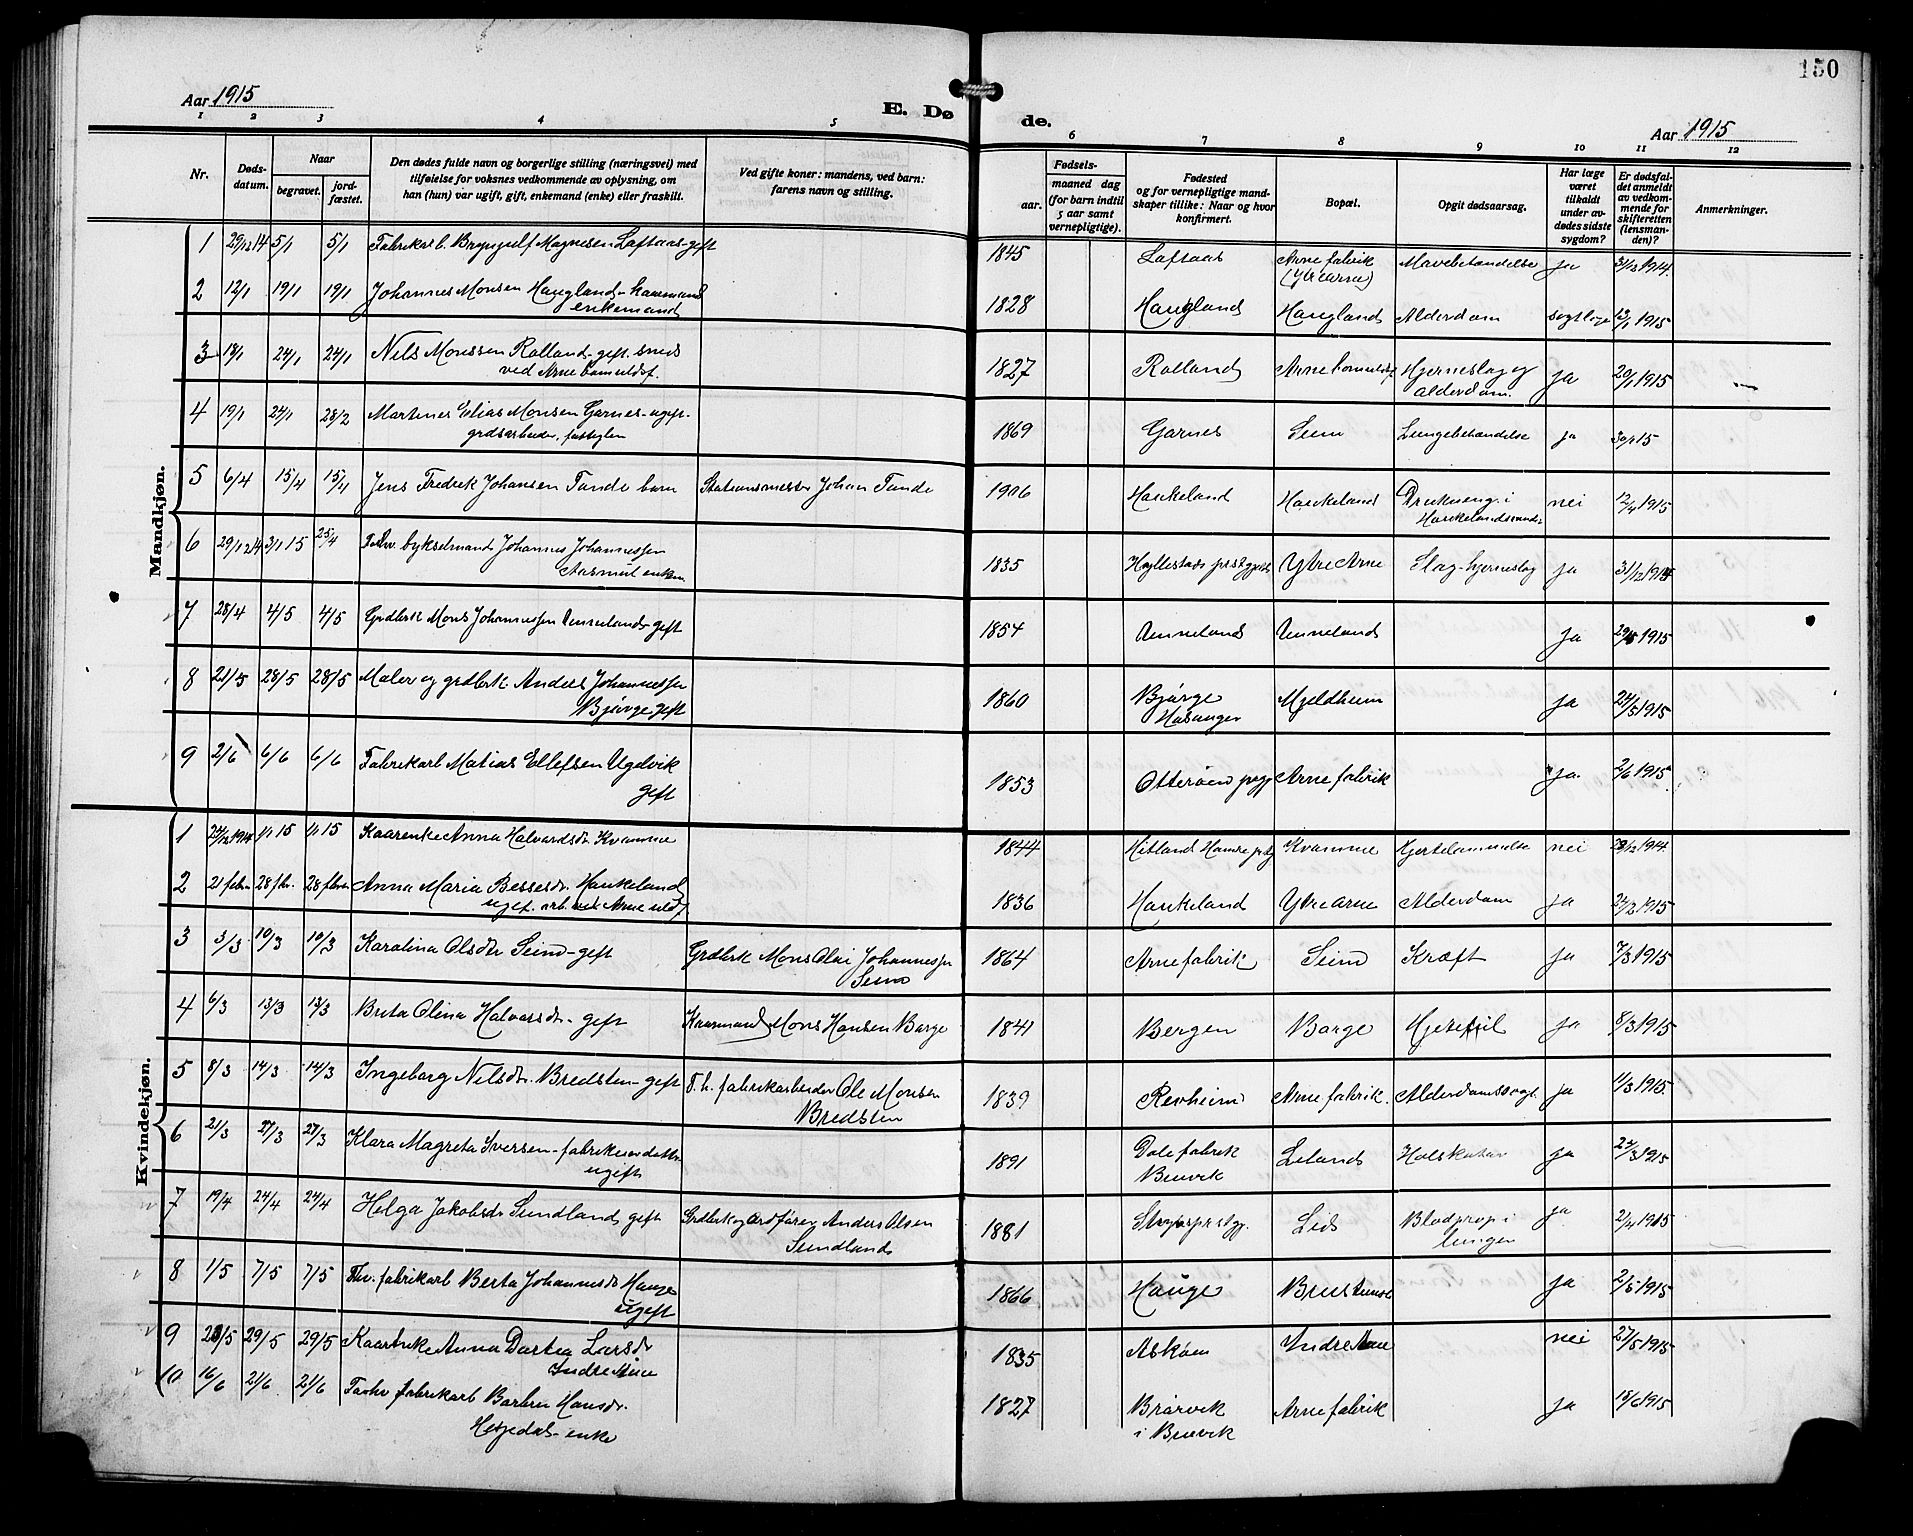 150
Aar 1915
E. Dø
de.
Aar 1915
1 2 3 4 5 6 7 8 9 10 11 12
Nr.
Døds-
datum.
Naar
begravet.
jord-
fæstet.
Den dødes fulde navn og borgerlige stilling (næringsvei) med
tilføielse for voksnes vedkommende av oplysning, om
han (hun) var ugift, gift, enkemand (enke) eller fraskilt.
Ved gifte koner: mandens, ved barn:
farens navn og stilling.
Fødsels-
aar.
maaned dag
(for barn indtil
5 aar samt
vernepligtige).
Fødested
og for vernepligtige mand-
skaper tillike: Naar og hvor
konfirmert.
Bopæl.
Opgit dødsaarsag.
Har læge
været
tilkaldt
under av-
dødes sidste
sygdom?
Er dødsfal-
det anmeldt
av vedkom-
mende for
skifteretten
(lensman-
den)?
Anmerkninger.
Mandkjøn.
1 29/12 14 5/1 5/1 Fabrikarb. Brynjulf Magnesen Loftaas-gift 1845 Loftaas Arne fabrik Mavebetændelse ja 31/12 1914
(Ytrearne)
2 12/1 19/1 19/1 Johannes Monsen Haugland - kaarmand 1828 Haugland Haugland Alderdom 1915
enkemand
3 13/1 24/1 24/1 Nils Monssen Rolland-gift. 1827 Rolland Hjerneslag og ja 20/1 1915
ved Arne
alderdom.
4 19/1 24/1 28/2 Martines Elias Monsen Garnes-ugift. 1869 Garnes Seim Lungebetændelse ja 30/1 15
5 6/4 15/4 15/4 Jens Fredrik Johansen Tunde barn Stationsmester Johan Tunde 1906 Haukeland Haukeland Drukning i nei 12/4 1915
6 29/12 14 3/1 15 25/4 Johannes Johannessen 1835 Hyllestads Ytre Arne Slag-hjerneslag ja 31/12 1914
7 28/4 4/5 4/5 Grdbrk Mons Johannessen Unneland-gift 1854 Unneland Unneland ja 1915
8 21/5 28/5 28/5 Maler og grdbrk Anders Johannessen 1860 Bjørge Mjeldheim ja 24/5 1915
Bjørge gift
Hosanger
9 2/6 6/6 6/6 Fabrikarb Matias Ellefsen Ugelvik 1853 Otterøen Arne fabrik ja 2/6 1915
gift
Kvindekjøn.
1 24/12 1914 1/1 15 1/1 15 Kaarenke Anna Halvardsdr Kvamme 1844 Hitland Hamre Kvamme nei 1914
2 21 febr. 28 fbr. 28 Anna Maria Bessesdr. Haukeland 1836 Haukeland Ytre Arne Alderdom ja 22/2 1915
ugift. arb. ved Arne uldf
3 3/3 10/3 10/3 Karolina Olsdtr Seim-gift Grdbrk Mons Olai Johannessen 1864 Arne fabrik Seim Kræft ja 7/3 1915
Seim
4 6/3 13/3 13/3 Brita Olina Halvorsdr - gift Kaarmand Mons Hansen Borge 1841 Bergen Borge Hjertefeil ja 8/3 1915
5 8/3 14/3 14/3 Ingeborg Nilsdr. Bredsten-gift F.h. fabrikarbeider Ole Monsen 1839 Revheim Arne fabrik. ja 11/3 1915
Bredsten
6 21/3 27/3 27/3 Klara Magreta Iversen-fabrikarb 1891 Dale fabrik Leland ja 22/3 1915
ugift
Bruvik
7 19/4 24/4 24/4 Helga Jakobsdr Sundland gift Grdbrk og ordfører Anders Olsen 1881 Lid Blodprop i ja 2/4 1915
Sundland
lungen
8 1/5 7/5 7/5 Fhv. fabrikarb Berta Johannesdr Hauge 1866 Hauge ja 2/5 1915
ugift
9 23/5 29/5 29/5 Kaarenke Anna Dortea Larsdr 1835 Askøen Indre Arne nei 27/5 1915
Indre Arne
10 16/6 21/6 21/6 fabrikarb Barbru Hansdr. 1827 Brørvik Arne fabrik ja 18/6 1915
Herjedal - enke
i Bruvik